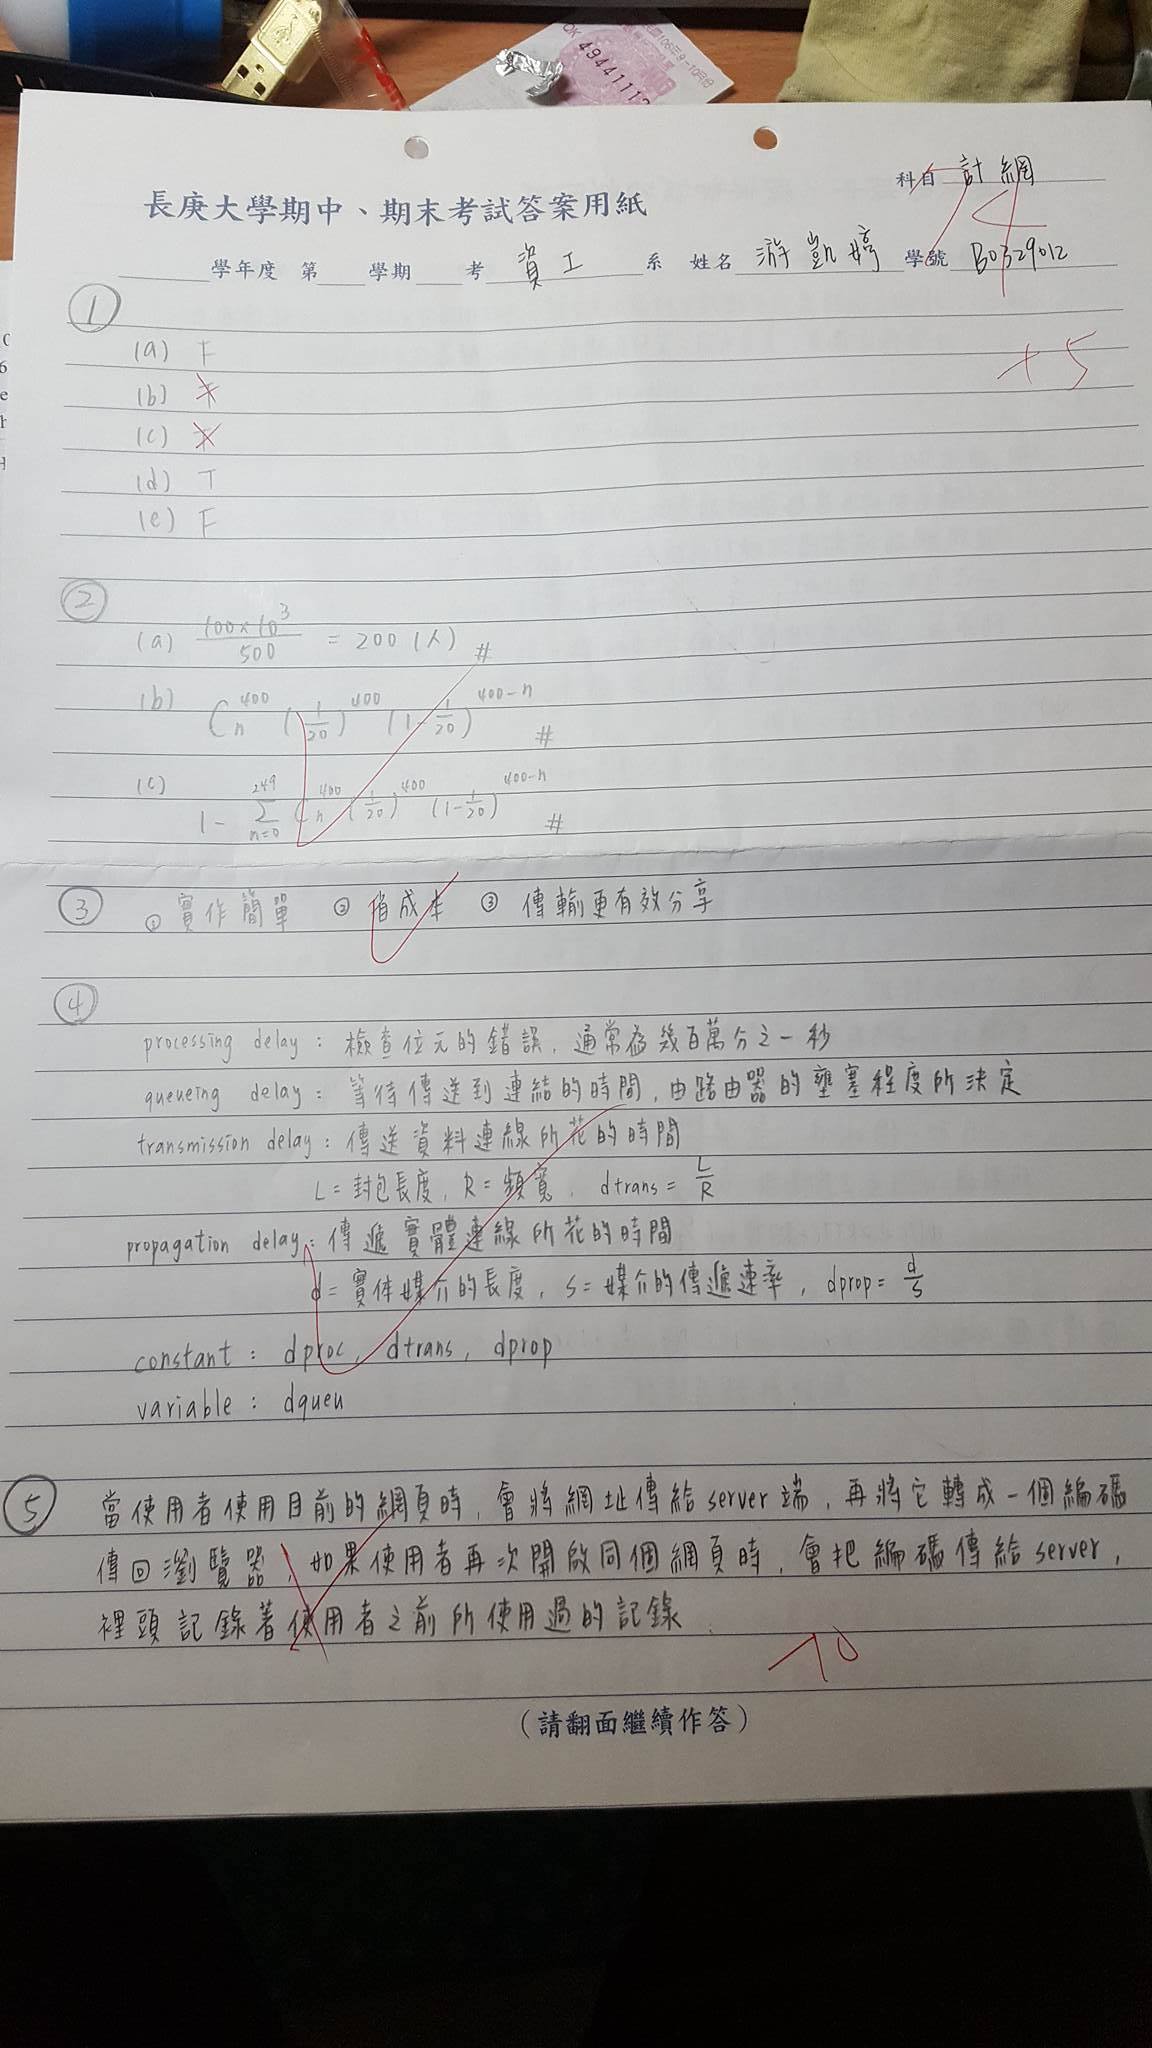 OK 49441112
科目 計網
長庚大學期中、期末考試答案用紙
學年度 第 學期 考 資工 系 姓名 游凱婷 學號 B0329012
①
+5
(a) F
(b)
(c)
(d) T
(e) F
②
(a) 100×10³/500 = 200 (人) #
(b) C n 400 (1/20)^400 (1-1/20)^400-n #
(c) 1 - Σ n=0 249 C n 400 (1/20)^400 (1-1/20)^400-n #
③ ① 實作簡單 ② 省成本 ③ 傳輸更有效分享
④
processing delay : 檢查位元的錯誤, 通常為幾百萬分之一秒
queueing delay : 等待傳送到連結的時間, 由路由器的壅塞程度所決定
transmission delay : 傳送資料連線所花的時間
L = 封包長度, R = 頻寬, dtrans = L/R
propagation delay : 傳遞實體連線所花的時間
d = 實体媒介的長度, s = 媒介的傳遞速率, dprop = d/s
constant : dproc, dtrans, dprop
variable : dqueu
⑤ 當使用者使用目前的網頁時, 會將網址傳給server端, 再將它轉成一個編碼
傳回瀏覽器, 如果使用者再次開啟同個網頁時, 會把編碼傳給server,
裡頭記錄著使用者之前所使用過的記錄.
-10
(請翻面繼續作答)